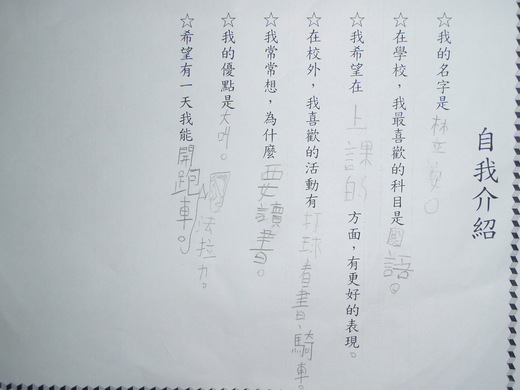 自我介紹
☆我的名字是林
☆在學校，我最喜歡的科目是國語。
☆我希望在上課的方面，有更好的表現。
☆在校外，我喜歡的活動有打球、看書、騎車。
☆我常常想，為什麼要讀書。
☆我的優點是大
☆希望有一天我能開跑車。法拉力。